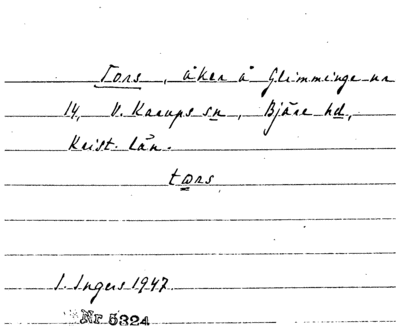 Tors, åker å Glimminge nr
14, V. Karups sn, Bjäre hd,
Krist. län.
tors
I. Ingers 1947
Nr 5324